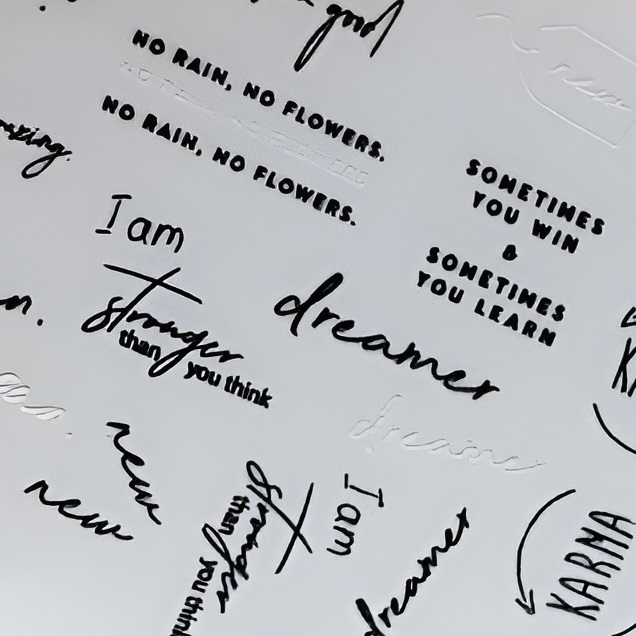 good
NO RAIN, NO FLOWERS.
NO RAIN, NO FLOWERS.
new
SOMETIMES
YOU WIN
&
SOMETIMES
YOU LEARN
I am
stronger
than you think
dreamer
dreamer
new
new
I am
stronger
than you think
dreamer
KARMA